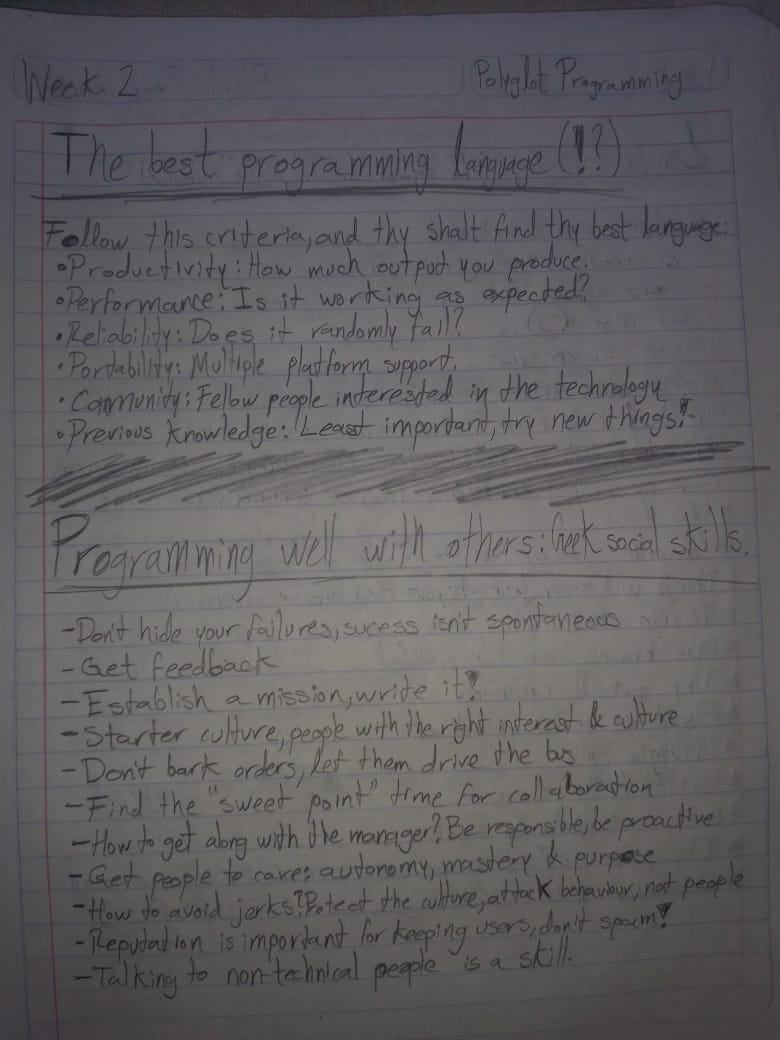 Week 2
Polyglot Programming
The best programming language (!?)
Follow this criteria, and thy shalt find thy best language:
•Productivity: How much output you produce.
•Performance: Is it working as expected?
•Reliability: Does it randomly fail?
•Portability: Multiple platform support.
•Community: Fellow people interested in the technology
•Previous knowledge: Least important, try new things!
Programming well with others: Geek social skills.
-Don't hide your failures, sucess isn't spontaneous
-Get feedback
-Establish a mission, write it!
-Starter culture, people with the right interest & culture
-Don't bark orders, let them drive the bus
-Find the "sweet point" time for collaboration
-How to get along with the manager? Be responsible, be proactive.
-Get people to care: autonomy, mastery & purpose
-How to avoid jerks? Protect the culture, attack behaviour, not people
-Reputation is important for keeping users, don't spam!
-Talking to non-technical people is a skill.